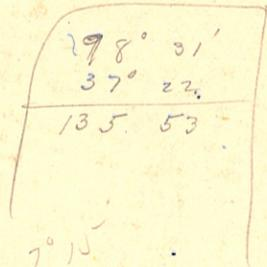 98° 31'
37° 22
135. 53
7° 15